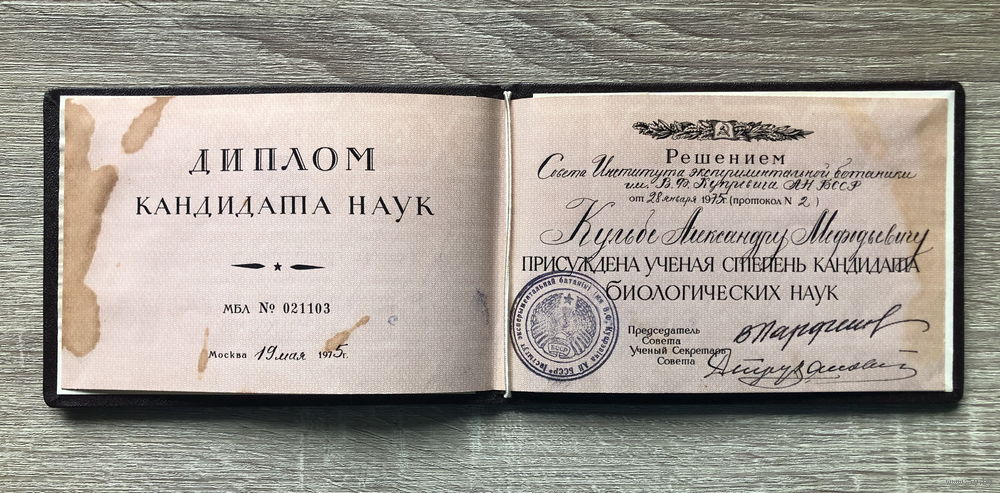 ДИПЛОМ
КАНДИДАТА НАУК
МБЛ № 021103
Москва 19 мая 1975г.
Решением
Совета Института экспериментальной ботаники
им. В.Ф. Купревича АН БССР
от 28 января 1975г. (протокол N 2)
Кульбе Александру Мефодьевичу
ПРИСУЖДЕНА УЧЕНАЯ СТЕПЕНЬ КАНДИДАТА
БИОЛОГИЧЕСКИХ НАУК
Председатель
Совета
Ученый Секретарь
Совета
БССР